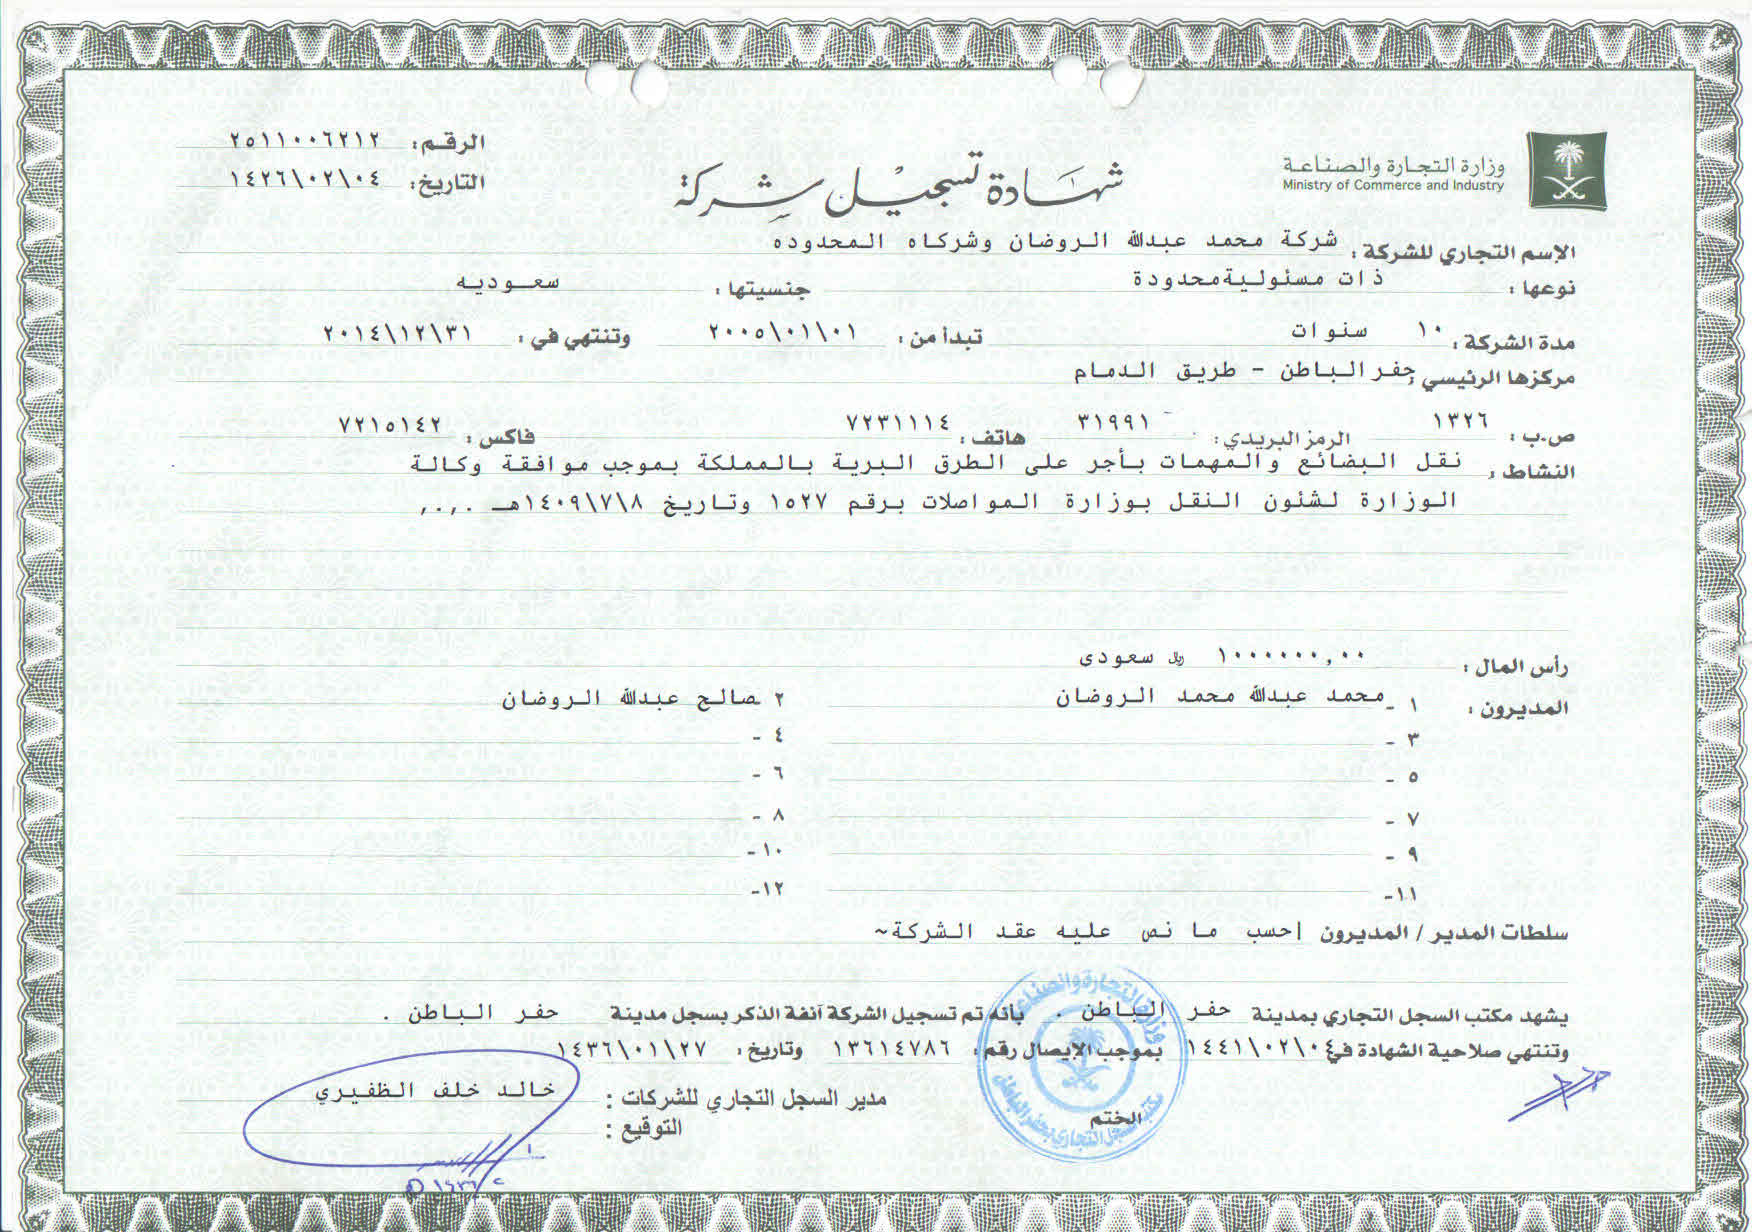 وزارة التجارة والصناعة
Ministry of Commerce and Industry
شهادة تسجيل شركة
الرقم: ٢٥١١٠٠٦٢١٢
التاريخ: ١٤٢٦\٠٢\٠٤
الإسم التجاري للشركة: شركة محمد عبدالله الروضان وشركاه المحدوده
نوعها: ذات مسئوليةمحدودة جنسيتها: سعوديه
مدة الشركة: ١٠ سنوات تبدأ من: ٢٠٠٥\٠١\٠١ وتنتهي في: ٢٠١٤\١٢\٣١
مركزها الرئيسي: حفرالباطن - طريق الدمام
ص.ب: ١٣٢٦ الرمز البريدي: ٣١٩٩١ هاتف: ٧٢٣١١١٤ فاكس: ٧٢١٥١٤٢
النشاط: نقل البضائع والمهمات بأجر على الطرق البرية بالمملكة بموجب موافقة وكالة
الوزارة لشئون النقل بوزارة المواصلات برقم ١٥٢٧ وتاريخ ١٤٠٩\٧\٨هـ .,.,
رأس المال: ١٠٠٠٠٠٠,٠٠ ريال سعودى
المديرون: ١ - محمد عبدالله محمد الروضان ٢ - صالح عبدالله الروضان
٣ - ٤ -
٥ - ٦ -
٧ - ٨ -
٩ - ١٠-
١١- ١٢-
سلطات المدير / المديرون |حسب ما نص عليه عقد الشركة~
يشهد مكتب السجل التجاري بمدينة حفر الباطن . بأنه تم تسجيل الشركة آنفة الذكر بسجل مدينة حفر الباطن .
وتنتهي صلاحية الشهادة في ١٤٤١\٠٢\٠٤ بموجب الإيصال رقم: ١٣٦١٤٧٨٦ وتاريخ: ١٤٣٦\٠١\٢٧
مدير السجل التجاري للشركات : خالد خلف الظفيري
التوقيع :
الختم
وزارة التجارة والصناعة
مكتب السجل التجاري بحفر الباطن